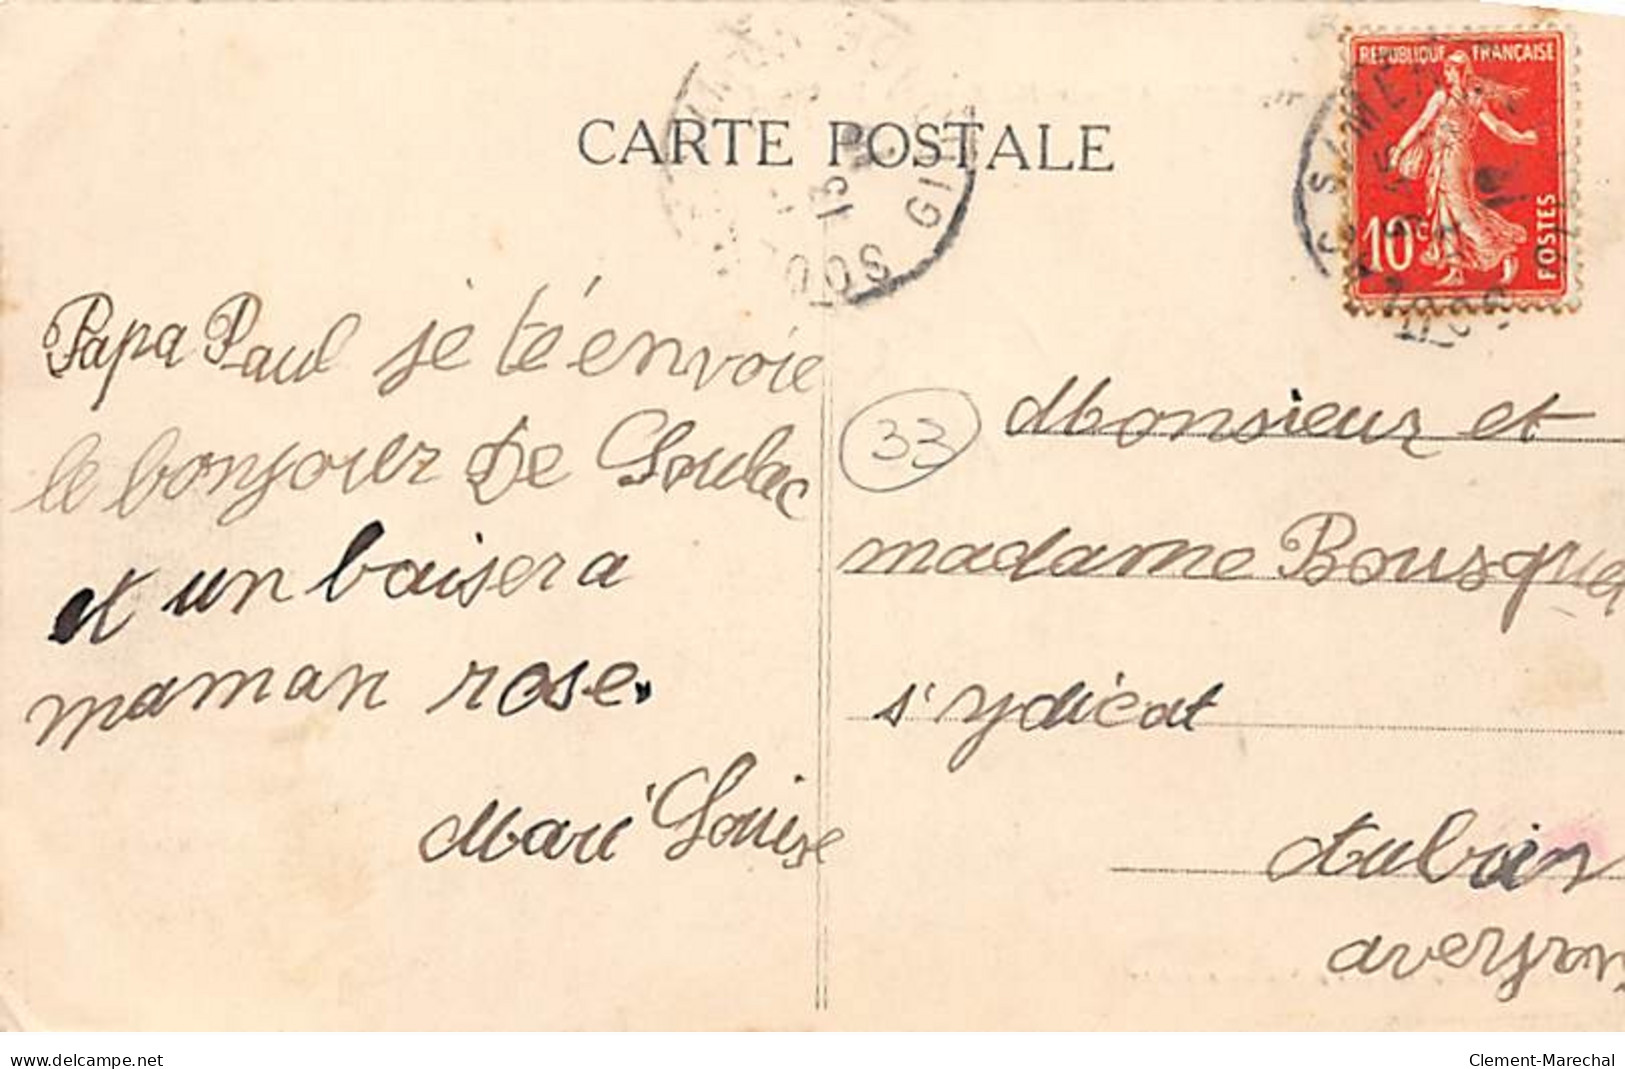 CARTE POSTALE
REPUBLIQUE FRANÇAISE
10c
POSTES
SOU
GI
13
Papa Paul jé té énvoie
le bonjouer De Soulac
et un baisera
maman rose.
Marí Louise
33
Monsieur et
madame Bousquet
s'ydicat
Aubin
aveyron
www.delcampe.net
Clement-Marechal